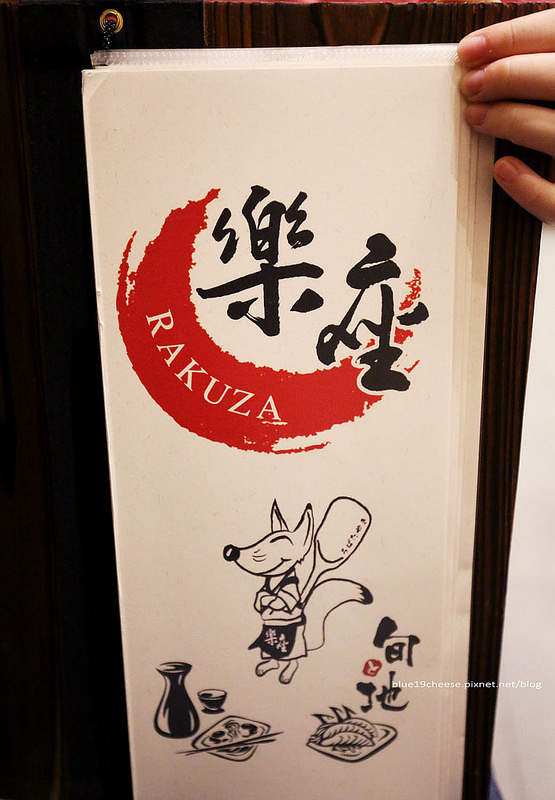 樂座
RAKUZA
樂座
旬
と
地
blue19cheese.pixnet.net/blog